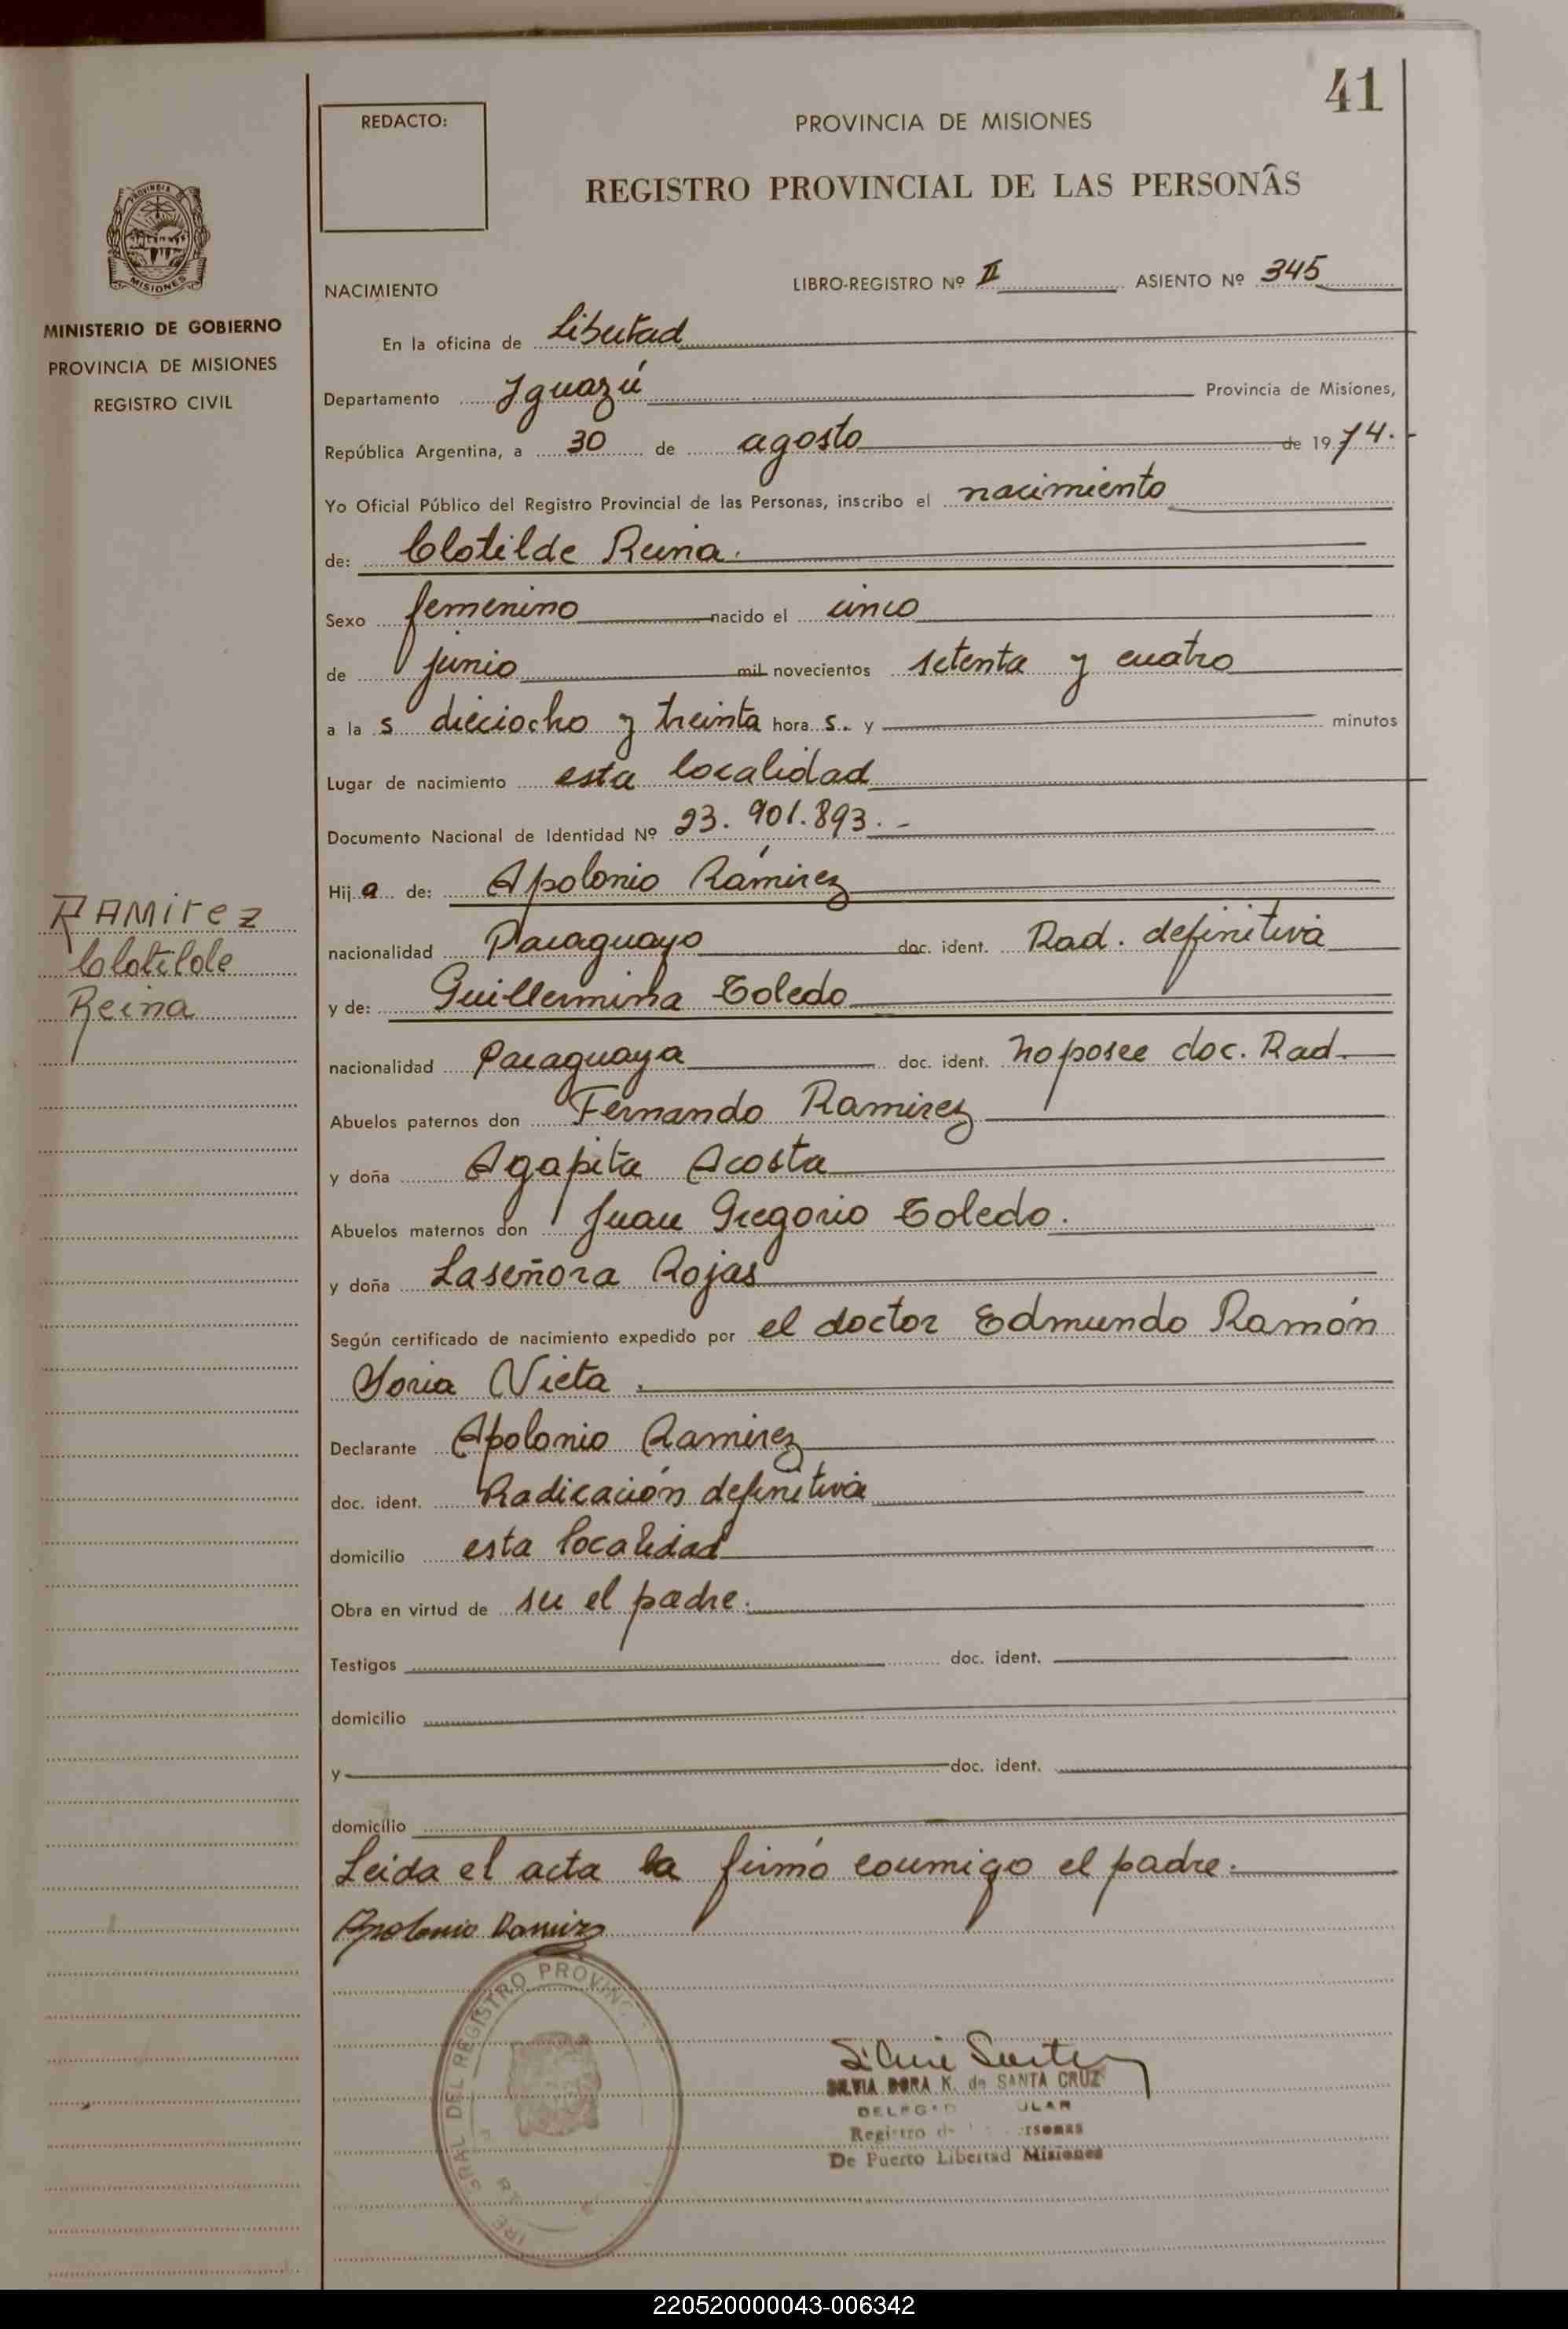 41
REDACTO:
PROVINCIA DE MISIONES
REGISTRO PROVINCIAL DE LAS PERSONAS
MISIONES
MINISTERIO DE GOBIERNO
PROVINCIA DE MISIONES
REGISTRO CIVIL
NACIMIENTO LIBRO-REGISTRO Nº II ASIENTO Nº 345
En la oficina de Libertad
Departamento Iguazú Provincia de Misiones,
República Argentina, a 30 de agosto de 1974.
Yo Oficial Público del Registro Provincial de las Personas, inscribo el nacimiento
de: Clotilde Reina.
Sexo femenino nacido el cinco
de junio mil novecientos setenta y cuatro
a la s dieciocho y treinta hora s. y minutos
Lugar de nacimiento esta localidad
Documento Nacional de Identidad Nº 23.901.893.-
Hij a de: Apolonio Ramírez
RAMirez
Clotilde
Reina
nacionalidad Paraguayo doc. ident. Rad. definitiva
y de: Guillermina Toledo
nacionalidad Paraguaya doc. ident. no posee doc. Rad.
Abuelos paternos don Fernando Ramirez
y doña Agapita Acosta
Abuelos maternos don Juan Gregorio Toledo.
y doña Laseñora Rojas
Según certificado de nacimiento expedido por el doctor Edmundo Ramón
Soria Vieta.
Declarante Apolonio Ramírez
doc. ident. Radicación definitiva
domicilio esta localidad
Obra en virtud de su el padre.
Testigos doc. ident.
domicilio
y doc. ident.
domicilio
Leida el acta la firmó conmigo el padre.
Apolonio Ramirez
DEL REGISTRO PROVINC
SILVIA DORA K. de SANTA CRUZ
Registro de
De Puerto Libertad Misiones
220520000043-006342